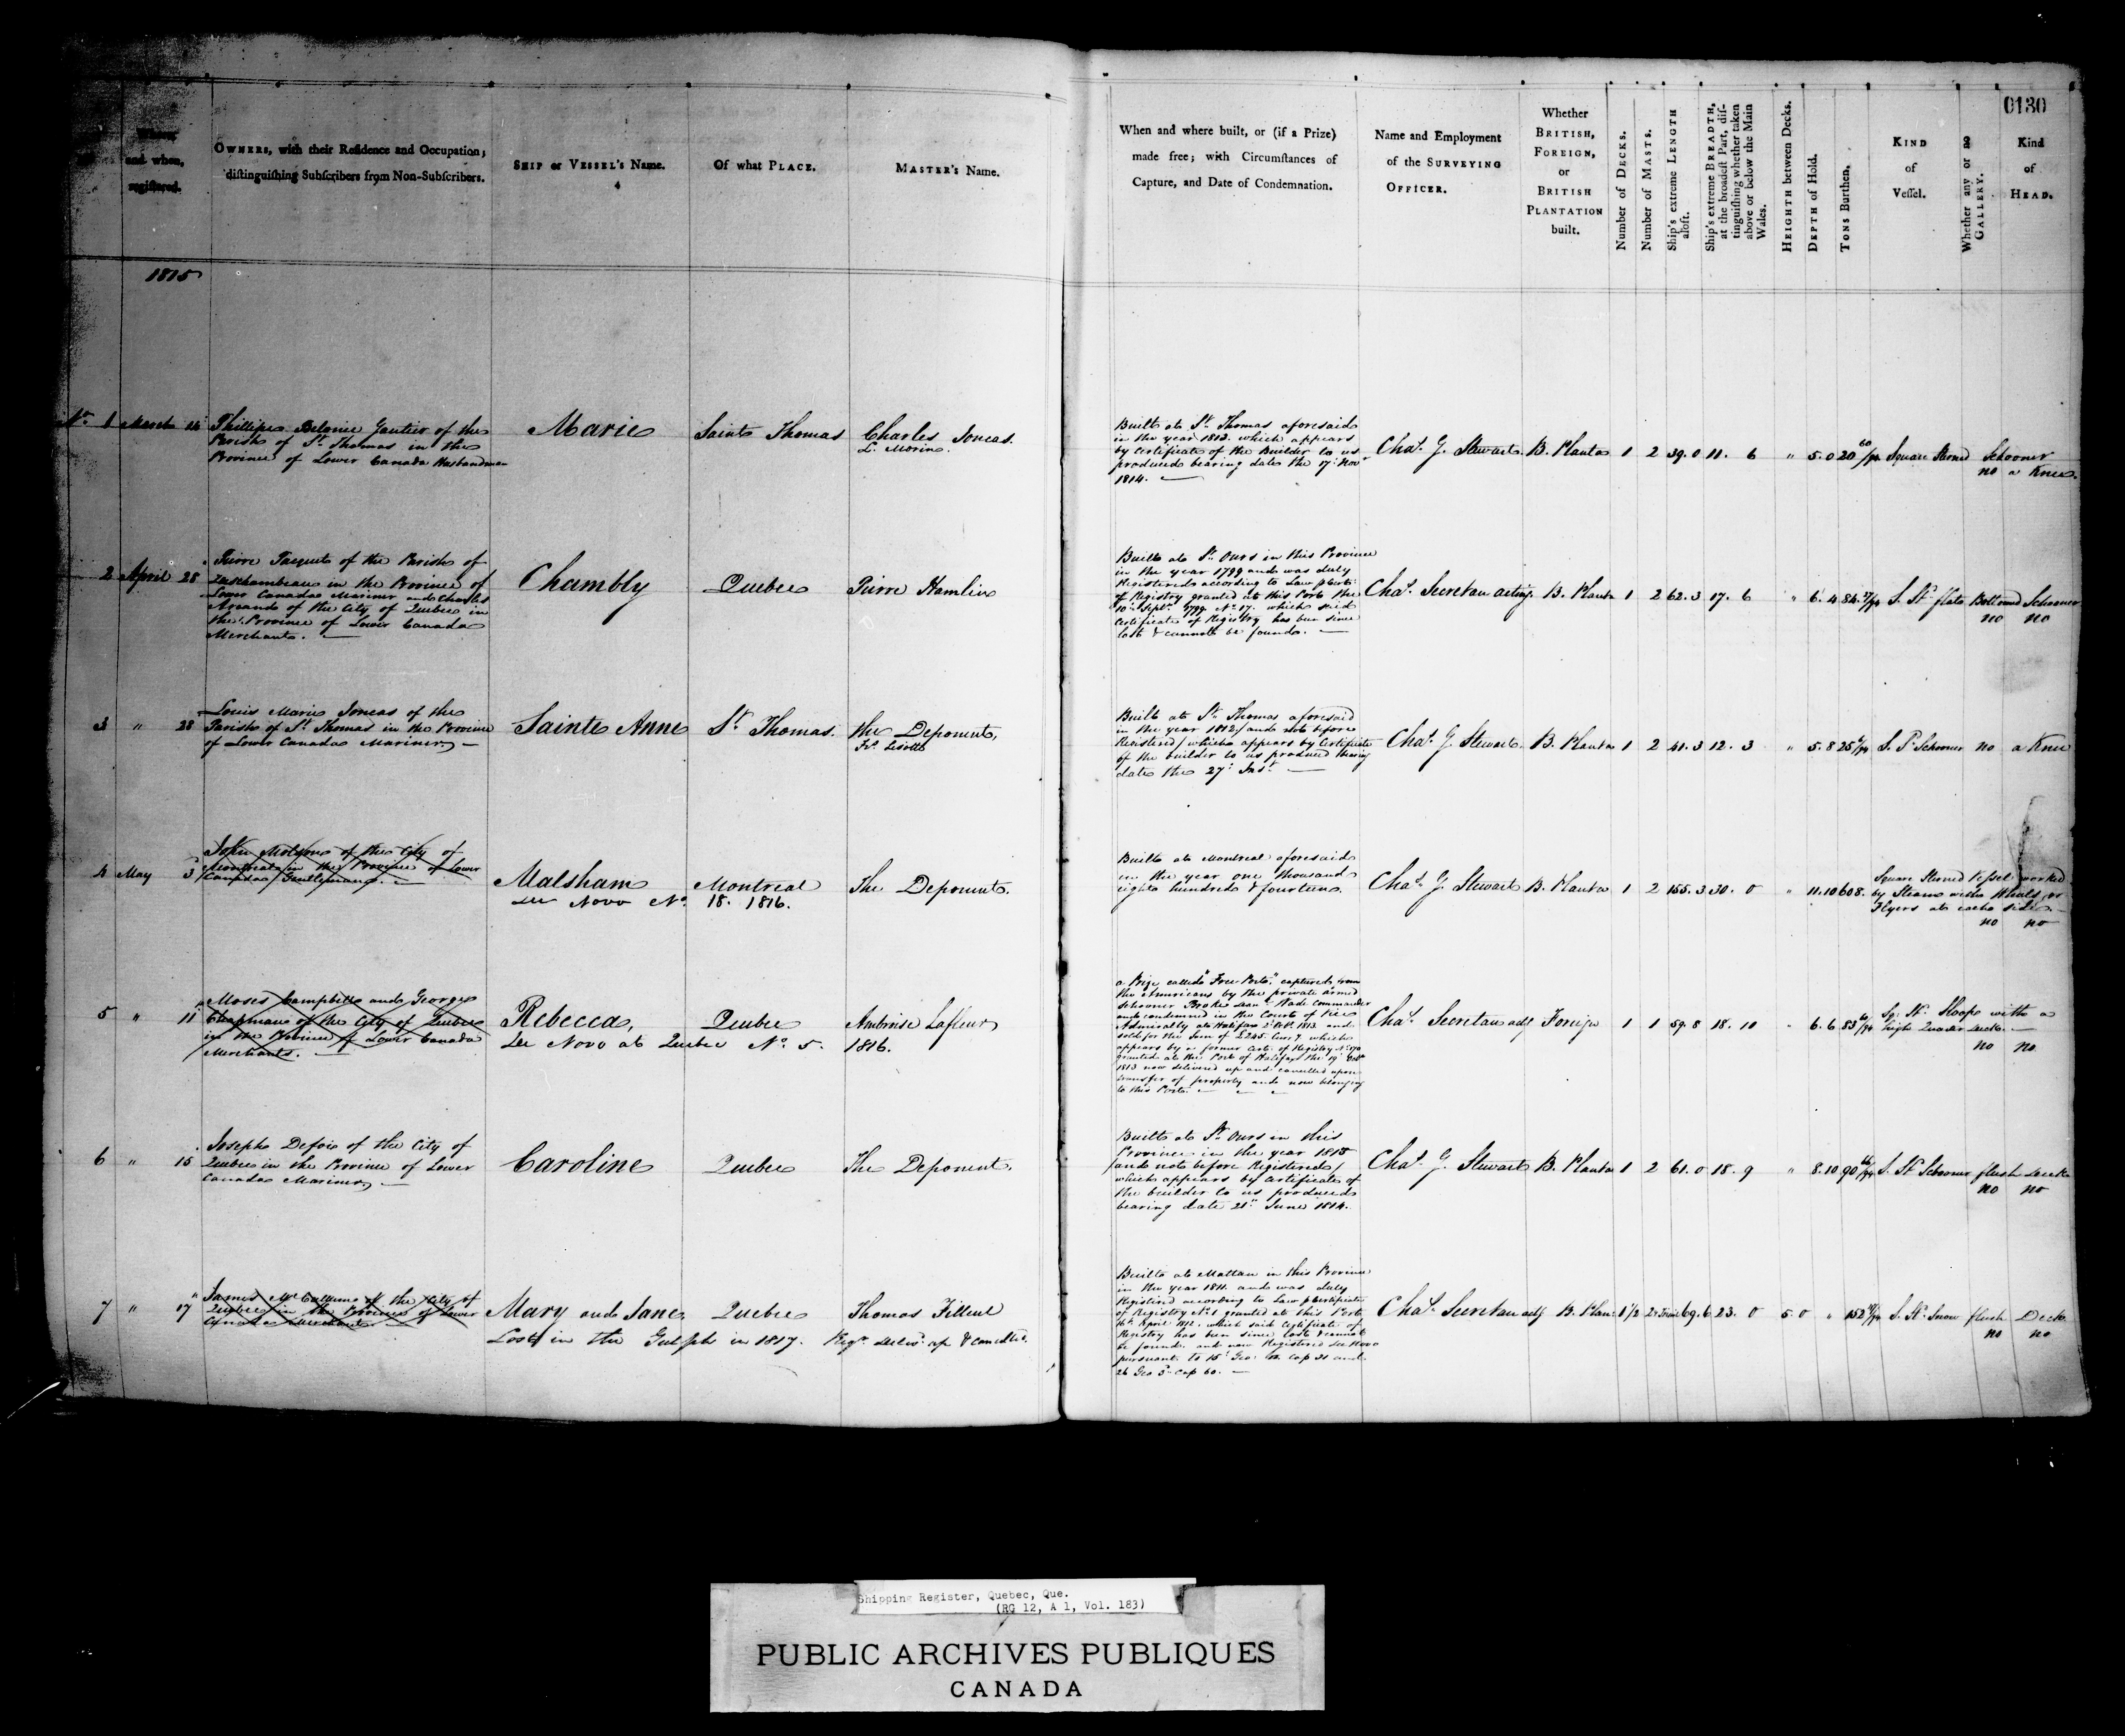 0130
Where,
and when,
registered.
OWNERS, with their Residence and Occupation;
distinguishing Subscribers from Non-Subscribers.
SHIP or VESSEL's Name.
Of what PLACE.
MASTER's Name.
When and where built, or (if a Prize)
made free; with Circumstances of
Capture, and Date of Condemnation.
Name and Employment
of the SURVEYING
OFFICER.
Whether
BRITISH,
FOREIGN,
or
BRITISH
PLANTATION
built.
Number of DECKS.
Number of MASTS.
Ship's extreme LENGTH
aloft.
Ship's extreme BREADTH,
at the broadest Part, dis-
tinguishing whether taken
above or below the Main
Wales.
HEIGHTH between Decks.
DEPTH of Hold.
TONS Burthen.
KIND
of
Vessel.
Whether any or no
GALLERY.
Kind
of
HEAD.
1815
No. 1 March 14
Phillipe Belonie Gautier of the
Parish of St. Thomas in the
Province of Lower Canada Husbandman
Marie
Saint Thomas
Charles Joncas.
L. Morin.
Built at St. Thomas aforesaid
in the year 1813. which appears
by Certificate of the Builder to us
produced bearing date the 17 Novr
1814.
Chas. G. Stewart. B. Planta 1 2 39. 0 11. 6 " 5. 0 20 60/94 Square Sterned Schooner
no a Knee.
2 April 28
Pierre Paquet of the Parish of
Deschambeau in the Province of
Lower Canada Mariner and Charles
of the City of Quebec in
the Province of Lower Canada
Merchants.
Chambly
Quebec
Pierre Hamlin
Built at St. Ours in this Province
in the year 1799 and was duly
Registered according to Law p Certe
of Registry granted at this Port the
10th Septr. 1799 No. 17. which said
Certificate of Registry has been since
lost & cannot be found.
Chas. Secretan acting B. Planta 1 2 62. 3 17. 6 " 6. 4 84. S. St. flat Bottomed Schooner
no no
3 " 28
Louis Marie Joncas of the
Parish of St. Thomas in the Province
of Lower Canada Mariner
Sainte Anne
St. Thomas.
the Deponent,
Built at St. Thomas aforesaid
in the year 1812/ and not before
Registered/ which appears by Certificate
of the builder to us produced bearing
date the 27 Inst.
Chas. G. Stewart. B. Planta 1 2 41. 3 12. 3 " 5. 8 25 Schooner no a Knee
4 May 3d
John Molson of the City of
Montreal in the Province of Lower
Canada Gentleman.
Malsham
De Novo No. 18. 1816.
Montreal
The Deponent.
Built at Montreal aforesaid
in the year one thousand
eight hundred & fourteen.
Chas. G. Stewart B. Planta 1 2 155. 3 30. 0 " 11. 10 608.
Square Sterned Vessel worked
by Steam with Wheels or
Flyers at each side
no no
5 " 11
Moses Campbell and George
Chapman of the City of Quebec
in the Province of Lower Canada
Merchants.
Rebecca,
De Novo at Quebec No. 5. 1816.
Quebec
Ambroise Lafleur
a Prize called "Free Port," captured from
the Americans by the private armed
Schooner Broke Wade Commander
and condemned in the Court of Vice
Admiralty at Halifax 2d Octr. 1813 and
sold for the Sum of £245. Curr'y. which
appears by a former Cert. of Registry No. 170
granted at the Port of Halifax the 19 Octr
1813 now delivered up and cancelled upon
transfer of property and now belonging
to this Port.
Chas. Secretan actg Foreign 1 1 59. 8 18. 10 " 6. 6 83
Sq. St. Sloop with a
high Quarter deck.
no no
6 " 15
Joseph Defoie of the City of
Quebec in the Province of Lower
Canada Mariner
Caroline
Quebec
The Deponent.
Built at St. Ours in this
Province in the year 1813
/and not before Registered/
which appears by Certificate of
the builder to us produced
bearing date 21st June 1814.
Chas. G. Stewart B. Planta 1 2 61. 0 18. 9 " 8. 10 90 S. St Schooner flush deck
no no
7 " 17
James McCallum of the City of
Quebec in the Province of Lower
Canada Merchant
Mary and Jane,
Quebec
Thomas Filleul
Lost in the Gulph in 1817. Regr. deliv'd up & cancelled.
Built at Mattan in this Province
in the year 1811. and was duly
Registered according to Law p Certificate
of Registry No. 1 granted at this Port
16th April 1812. which said Certificate of
Registry has been since lost & cannot
be found. and now Registered De Novo
pursuant to 15 Geo: 2d. Cap 31 and
26 Geo 3d Cap 60.
Chas. Secretan actg B. Plan. 1 1/2 2 69. 6 23. 0 5 0 " 152 S. St. Snow flush Deck
no no
Shipping Register, Quebec, Que.
(RG 12, A 1, Vol. 183)
PUBLIC ARCHIVES PUBLIQUES
CANADA